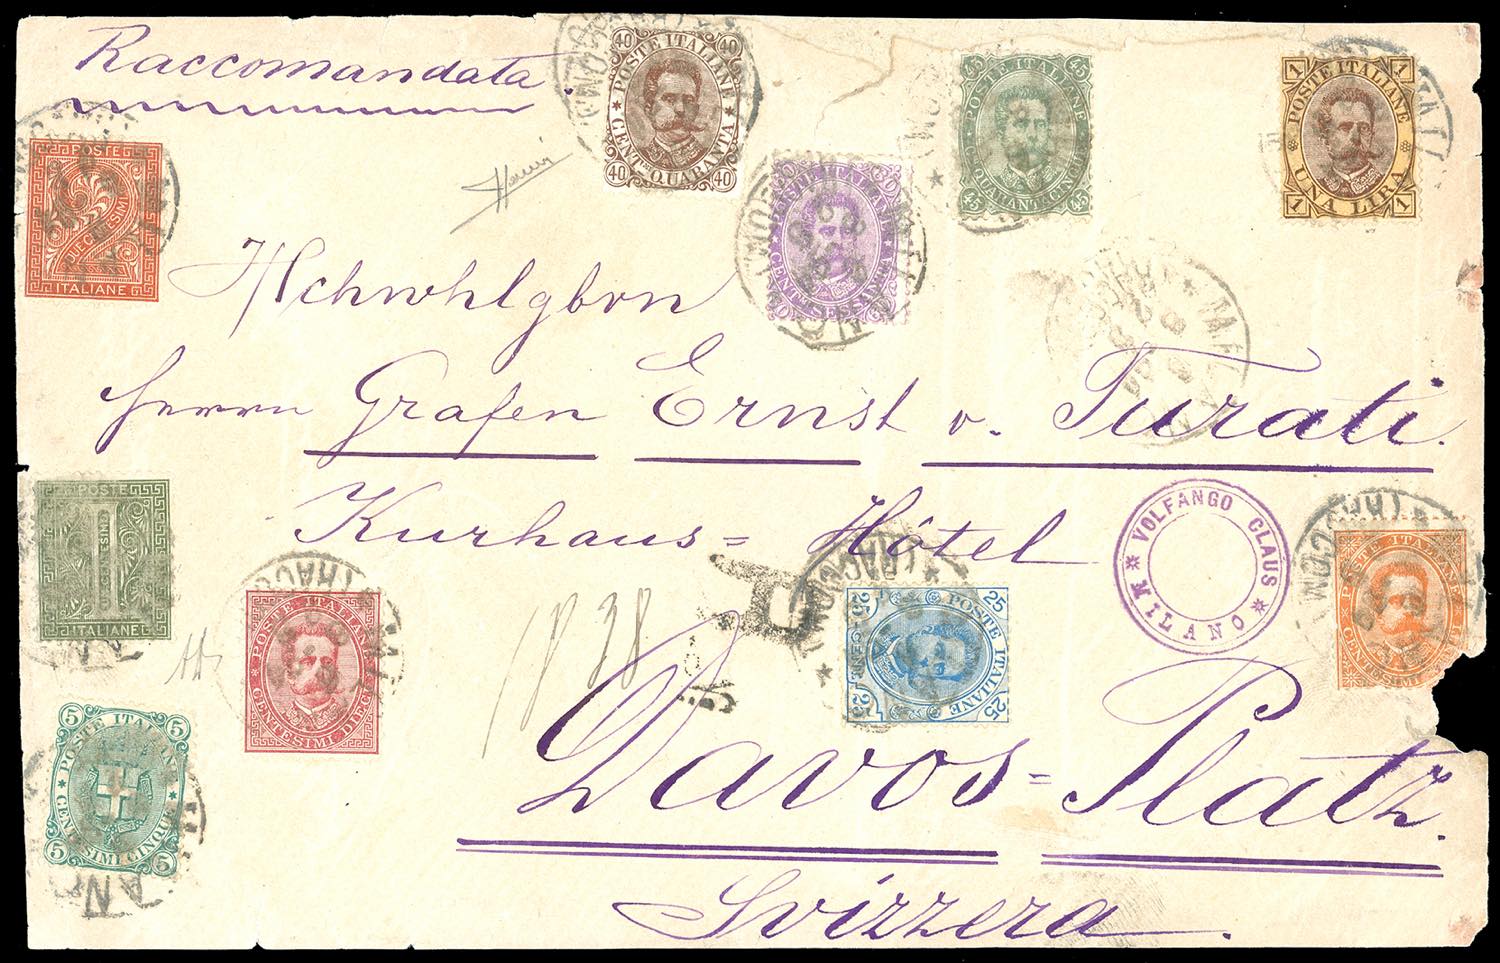 Raccomandata.
40 POSTE ITALIANE 40
CENT. QUARANTA
40 40
45 POSTE ITALIANE 45
C. QUARANTACINQUE
45 45
1 POSTE ITALIANE 1
UNA LIRA
1 1
POSTE
2
DUE CENTESIMI
ITALIANE
POSTE ITALIANE 60
CENT. SESSANTA
60 60
Hchwhlgbrn
Herrn Grafen Ernst v. Turati.
Kurhaus= Hôtel
POSTE
1
UN CENTESIMO
ITALIANE
VOLFANGO CLAUS
MILANO
POSTE ITALIANE
CENTESIMI
POSTE ITALIANE
CENTESIMI DIECI
25 POSTE ITALIANE 25
25 CENT. 25
R
18 38
5 POSTE ITALIANE 5
CENTESIMI CINQUE
5 5
Davos=Platz.
Svizzera.